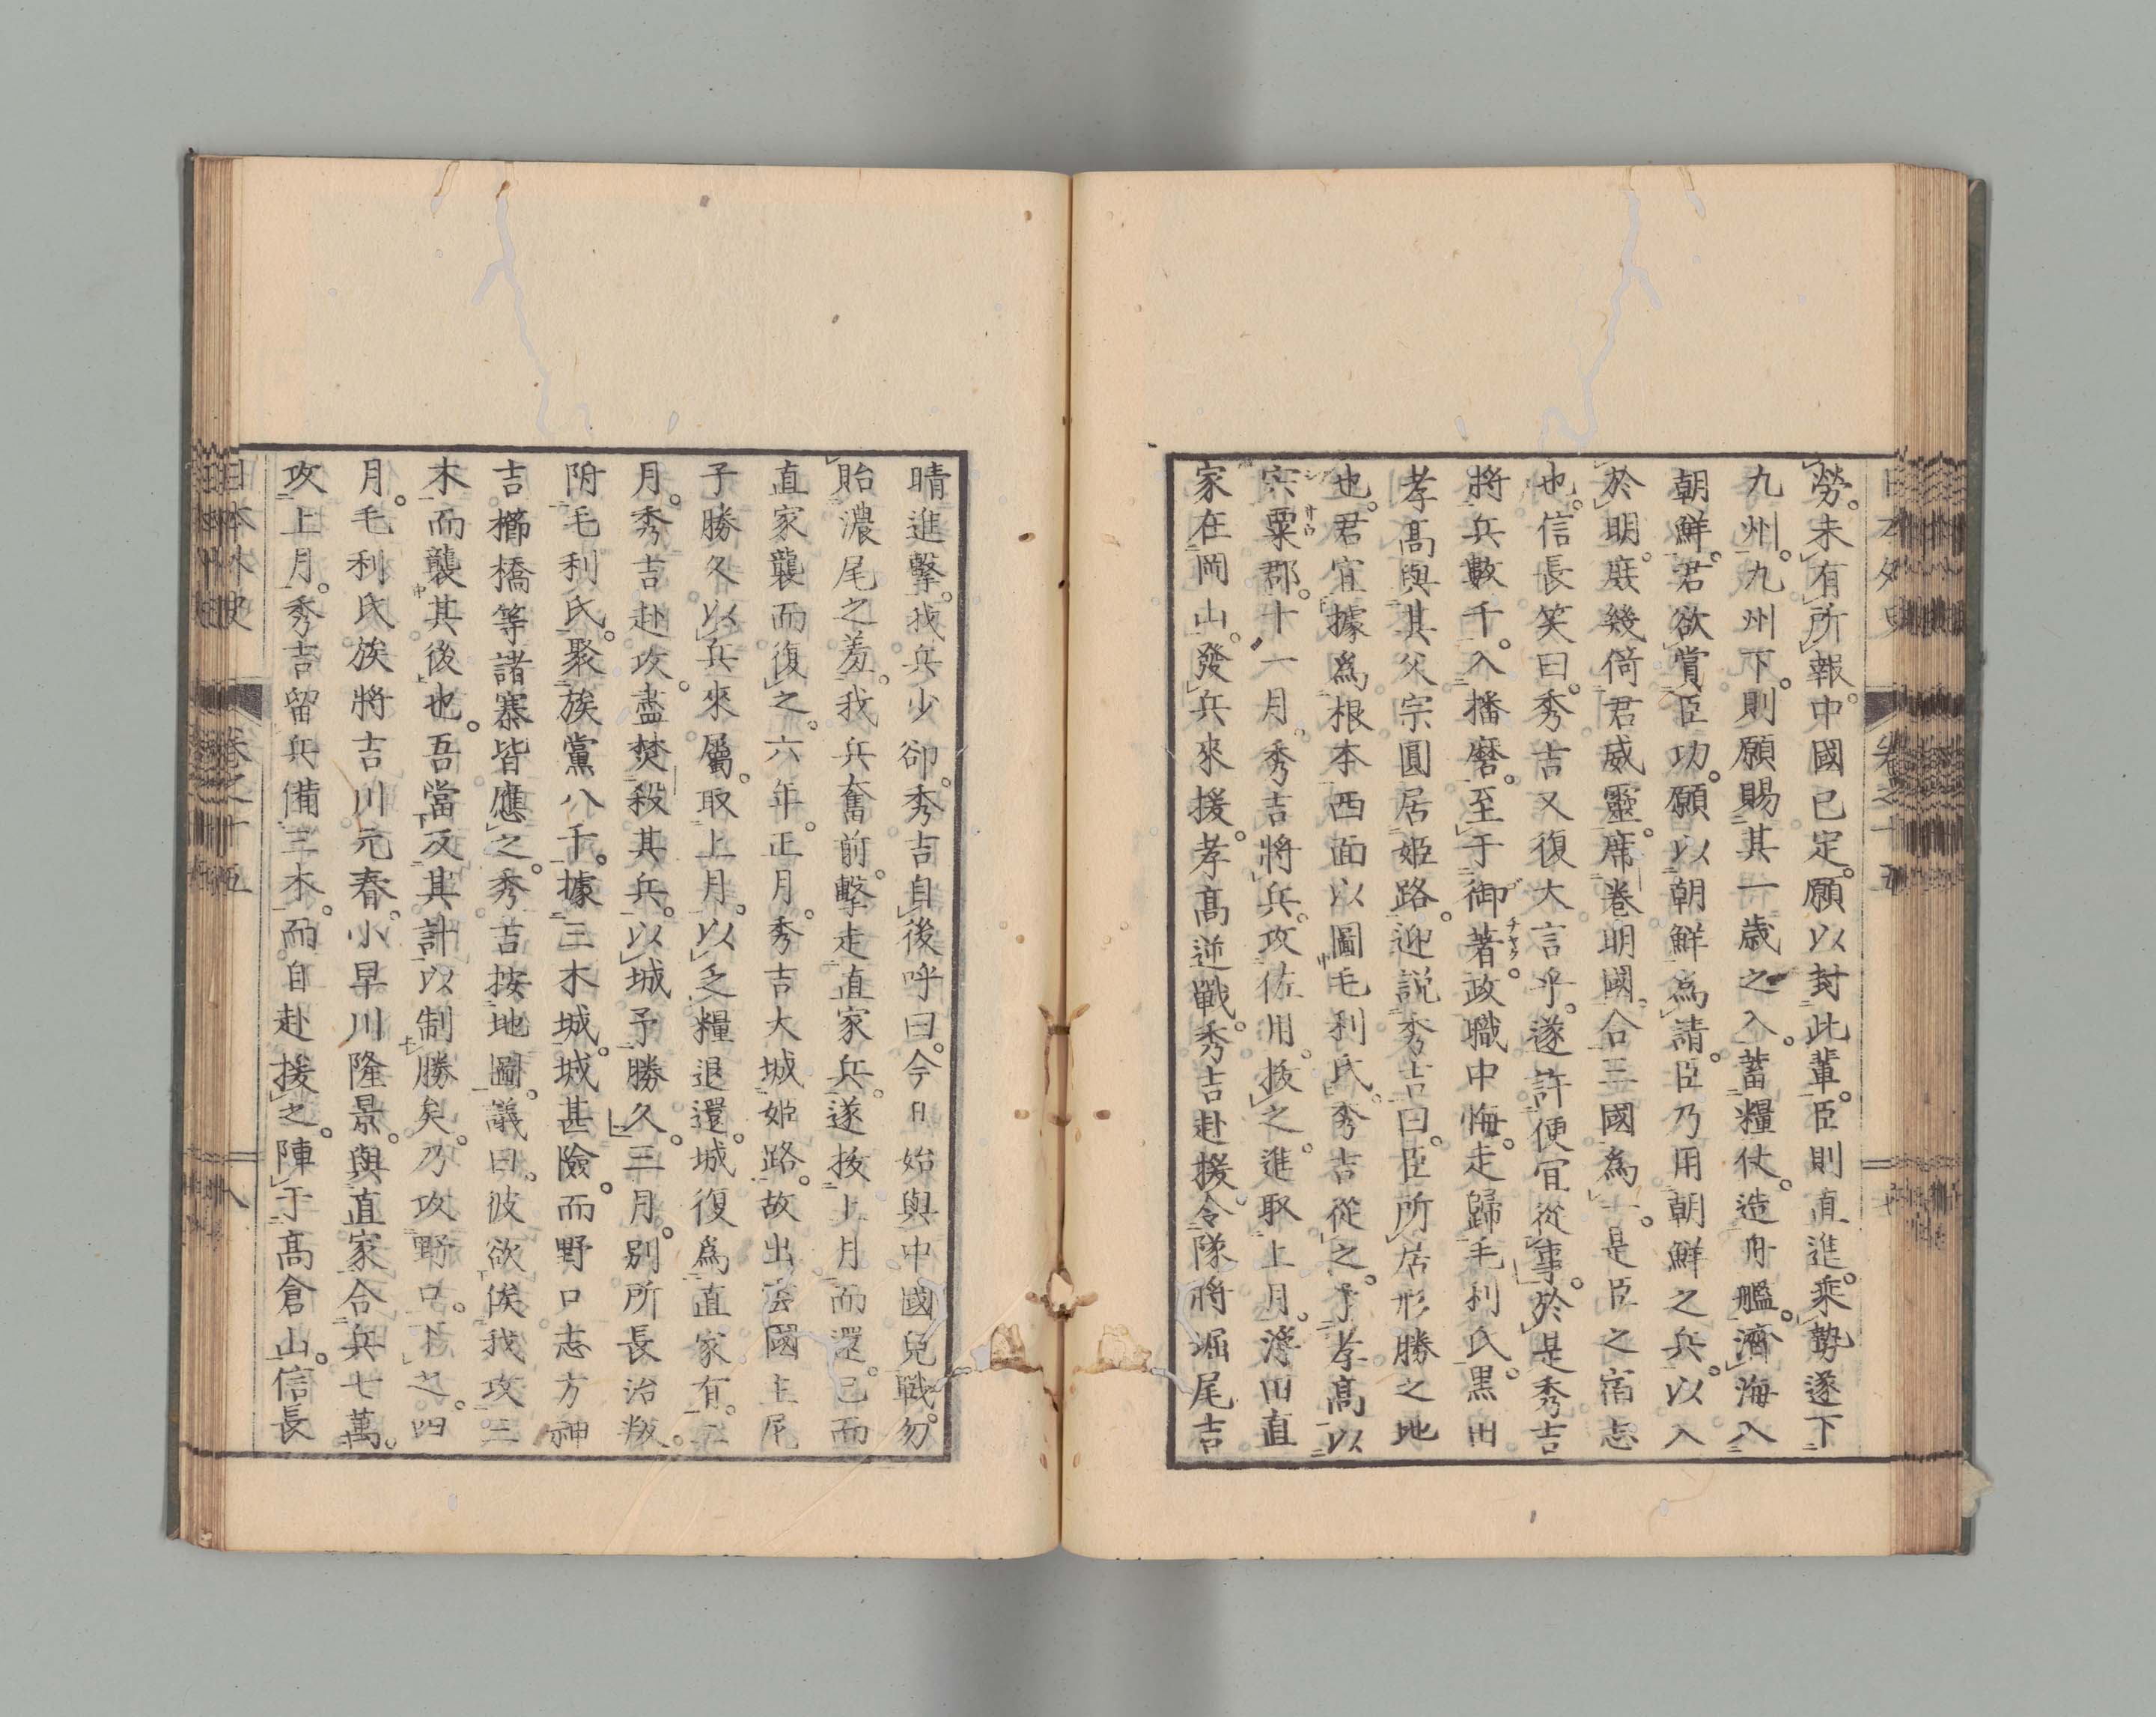 勞。未有所報。中國已定。願以封此輩。臣則直進。乘勢遂下
九州。九州下。則願賜其一歲之入。蓄糧仗。造舟艦。濟海入
朝鮮。君欲賞臣功。願以朝鮮爲請。臣乃用朝鮮之兵。以入
於明。庶幾倚君威靈。席卷明國。合三國爲一。是臣之宿志
也。信長笑曰。秀吉又復大言乎。遂許便宜從事。於是秀吉
將兵數千。入播磨。至于御著。政職中悔。走歸毛利氏。黒田
孝高與其父宗圓居姬路。迎説秀吉曰。臣所居形勝之地
也。君宜據爲根本西面以圖毛利氏。秀吉從之。予孝高以
宍粟郡。十一月。秀吉將兵。攻佐用。拔之。進取上月。浮田直
家在岡山。發兵來援。孝高逆戰。秀吉赴援。令隊將堀尾吉
晴進擊。我兵少卻。秀吉自後呼曰。今日始與中國兒戰。勿
貽濃尾之羞。我兵奮前。擊走直家兵。遂拔上月而還。已而
直家襲而復之。六年。正月。秀吉大城姬路。故出雲國主尼
子勝久以兵來屬。取上月。以乏糧退還。城復爲直家有。二
月。秀吉赴攻。盡焚殺其兵。以城予勝久。三月。別所長治叛。
附毛利氏。聚族黨八千。據三木城。城甚險。而野口志方神
吉櫛橋等諸寨皆應之。秀吉按地圖。議曰。彼欲俟我攻三
木而襲其後也。吾當反其計以制勝矣。乃攻野口。下之。四
月。毛利氏族將吉川元春。小早川隆景。與直家合兵七萬。
攻上月。秀吉留兵備三木。而自赴援之。陣于高倉山。信長
日本外史 卷之十五 八